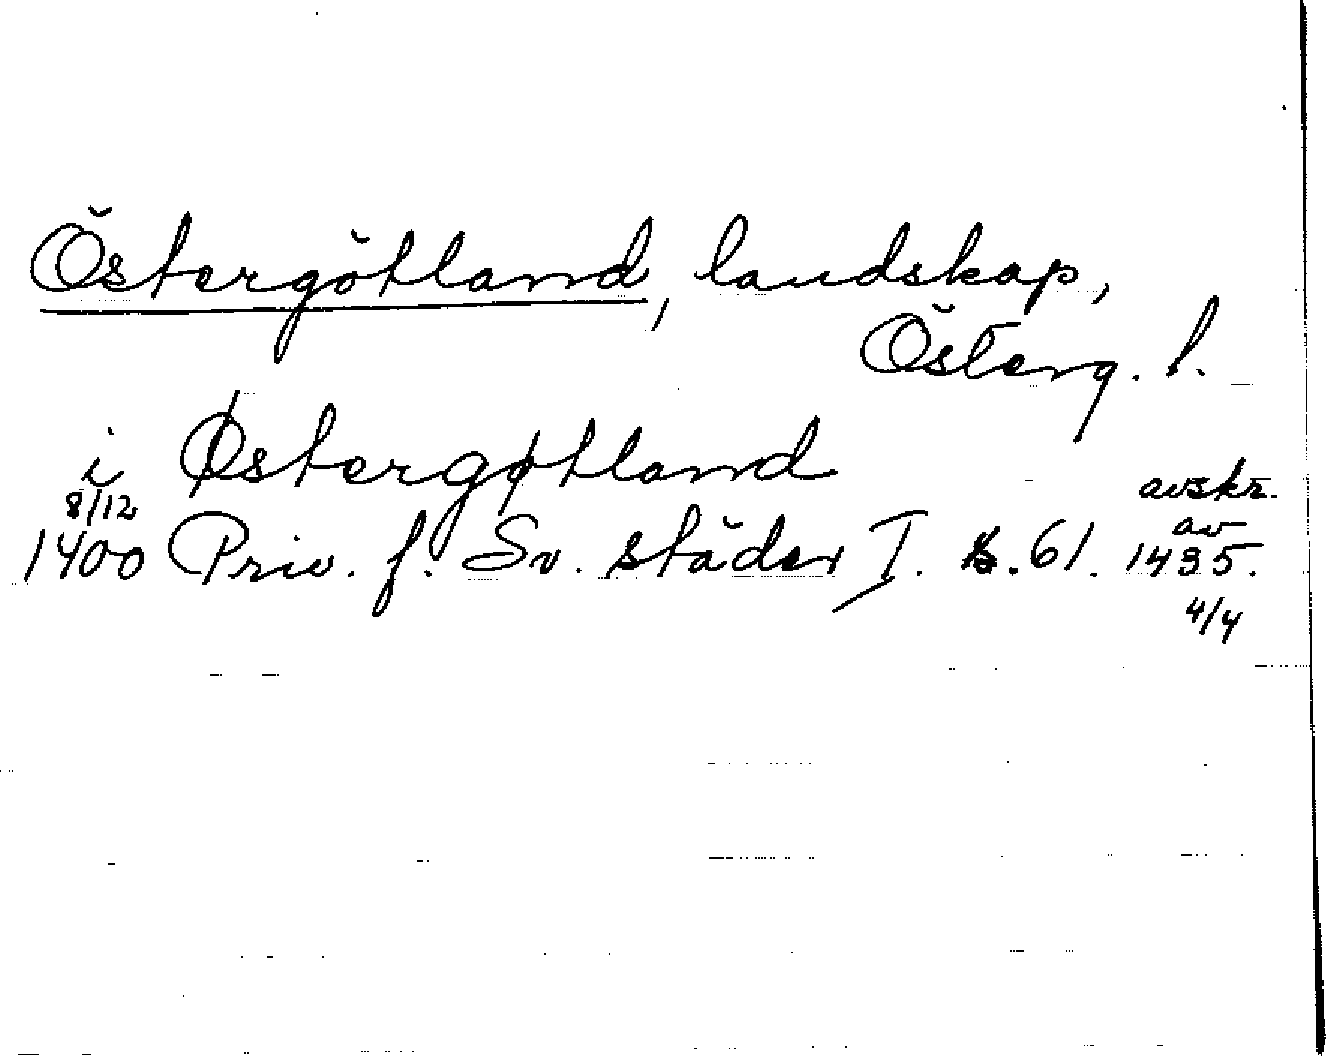 Östergötland, landskap,
Österg. l.
i Østergøtland
8/12 avskr.
1400 Priv. f. Sv. städer I. s. 61. av 1435.
4/4